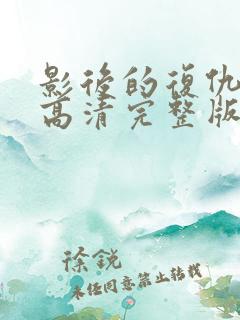 影後的復仇
高清完整版
徐銳
未经同意禁止转载